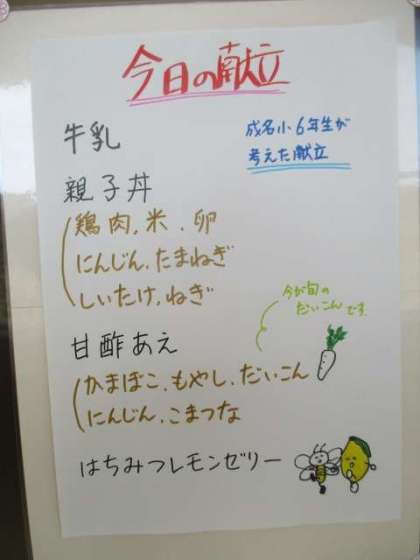 今日の献立
成名小6年生が
考えた献立
牛乳
親子丼
鶏肉、米、卵
にんじん、たまねぎ
しいたけ、ねぎ
今が旬の
だいこんです
甘酢あえ
かまぼこ、もやし、だいこん
にんじん、こまつな
はちみつレモンゼリー